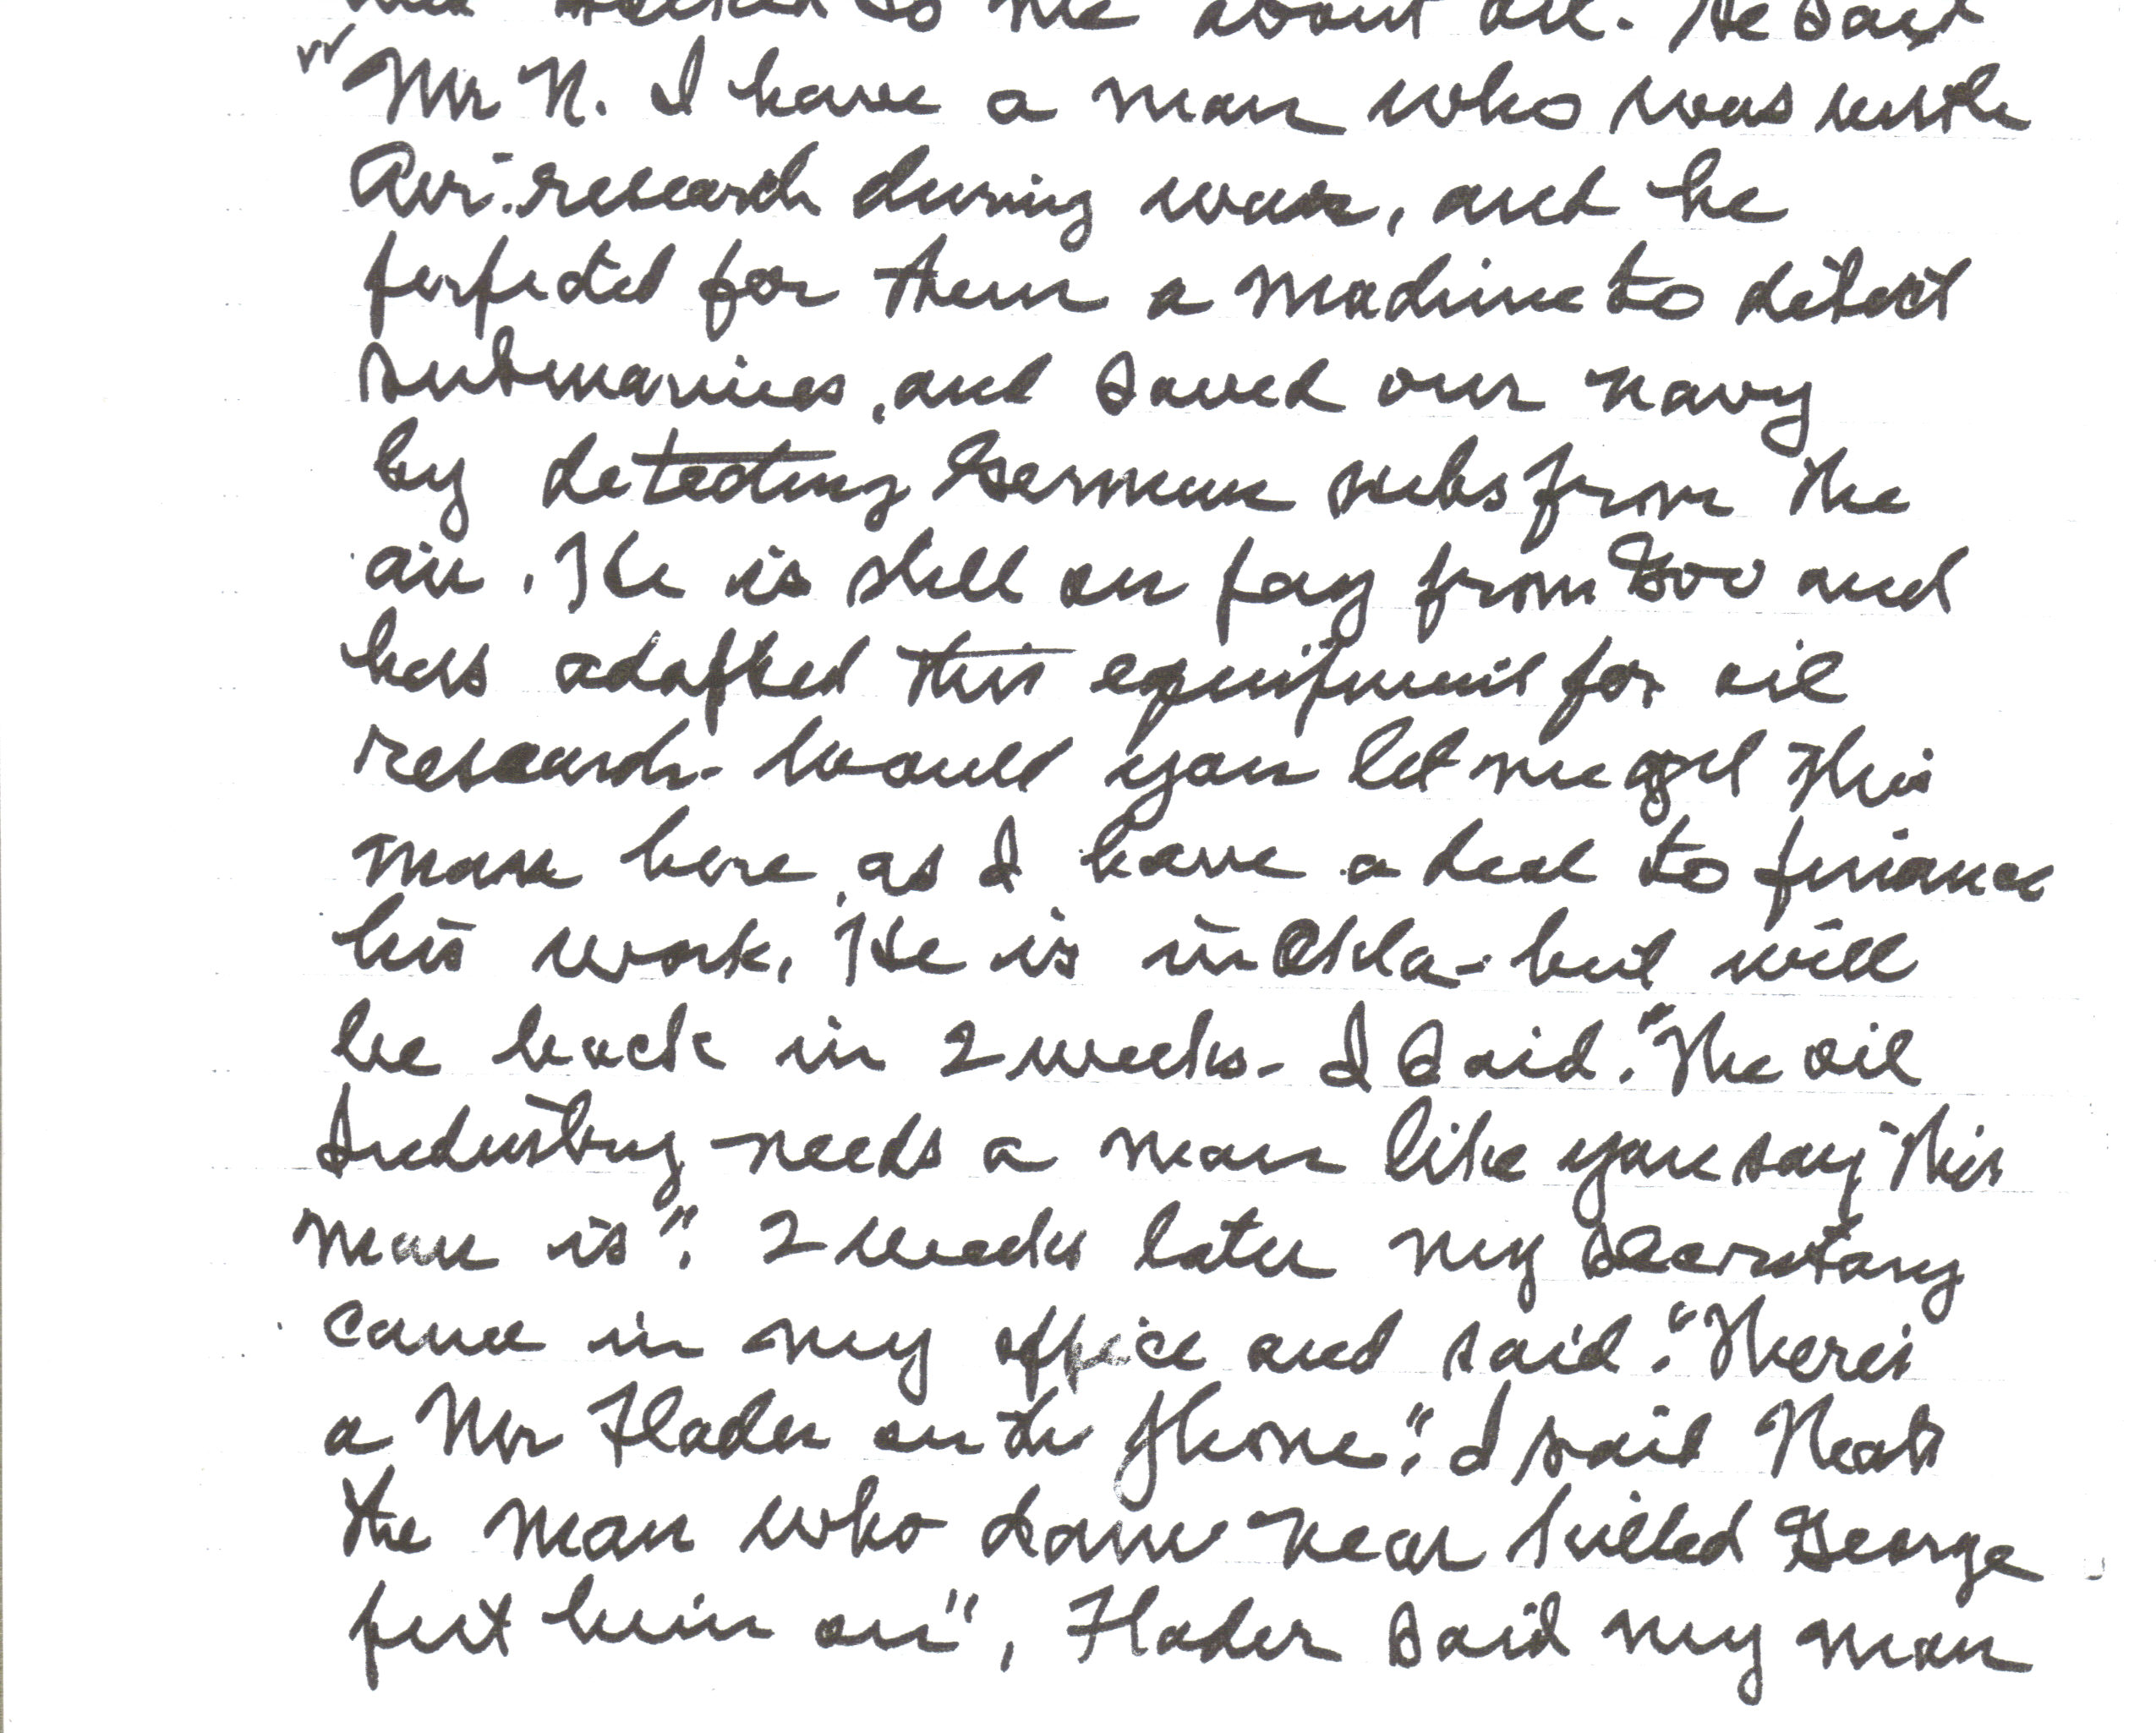 talked to me about oil. He said
"Mr N. I have a man who was with
Avi. research during war, and he
perfected for them a machine to detect
submarines, and saved our navy
by detecting German subs from the
air. He is still on pay from Gov and
has adapted this equipment for oil
research - Would you let me get this
man here, as I have a deal to finance
his work. He is in Okla - but will
be back in 2 weeks - I said. "The oil
Industry needs a man like you say this
man is". 2 weeks later my secretary
came in my office and said. "Theres
a Mr Flader on the phone". I said Thats
the man who damn near killed George
put him on", Flader said my man